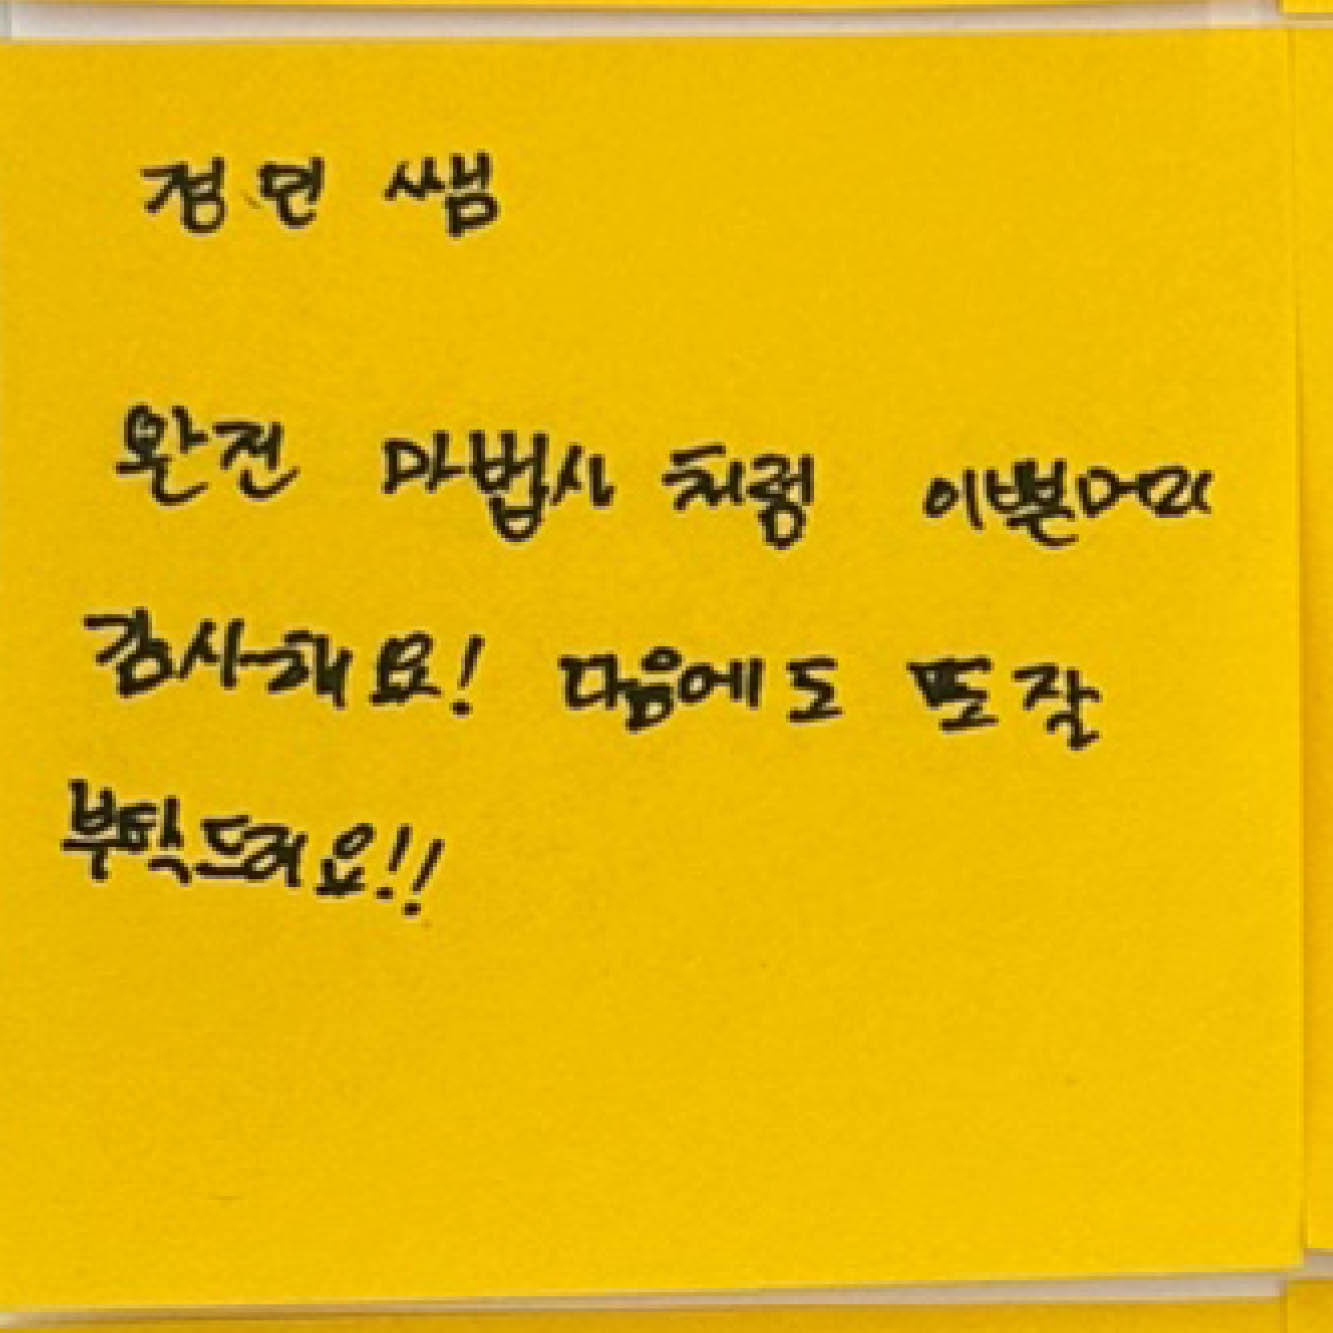 쌤
완전 마법사 처럼 이쁜머리
감사해요! 다음에도 또 잘
부탁드려요!!